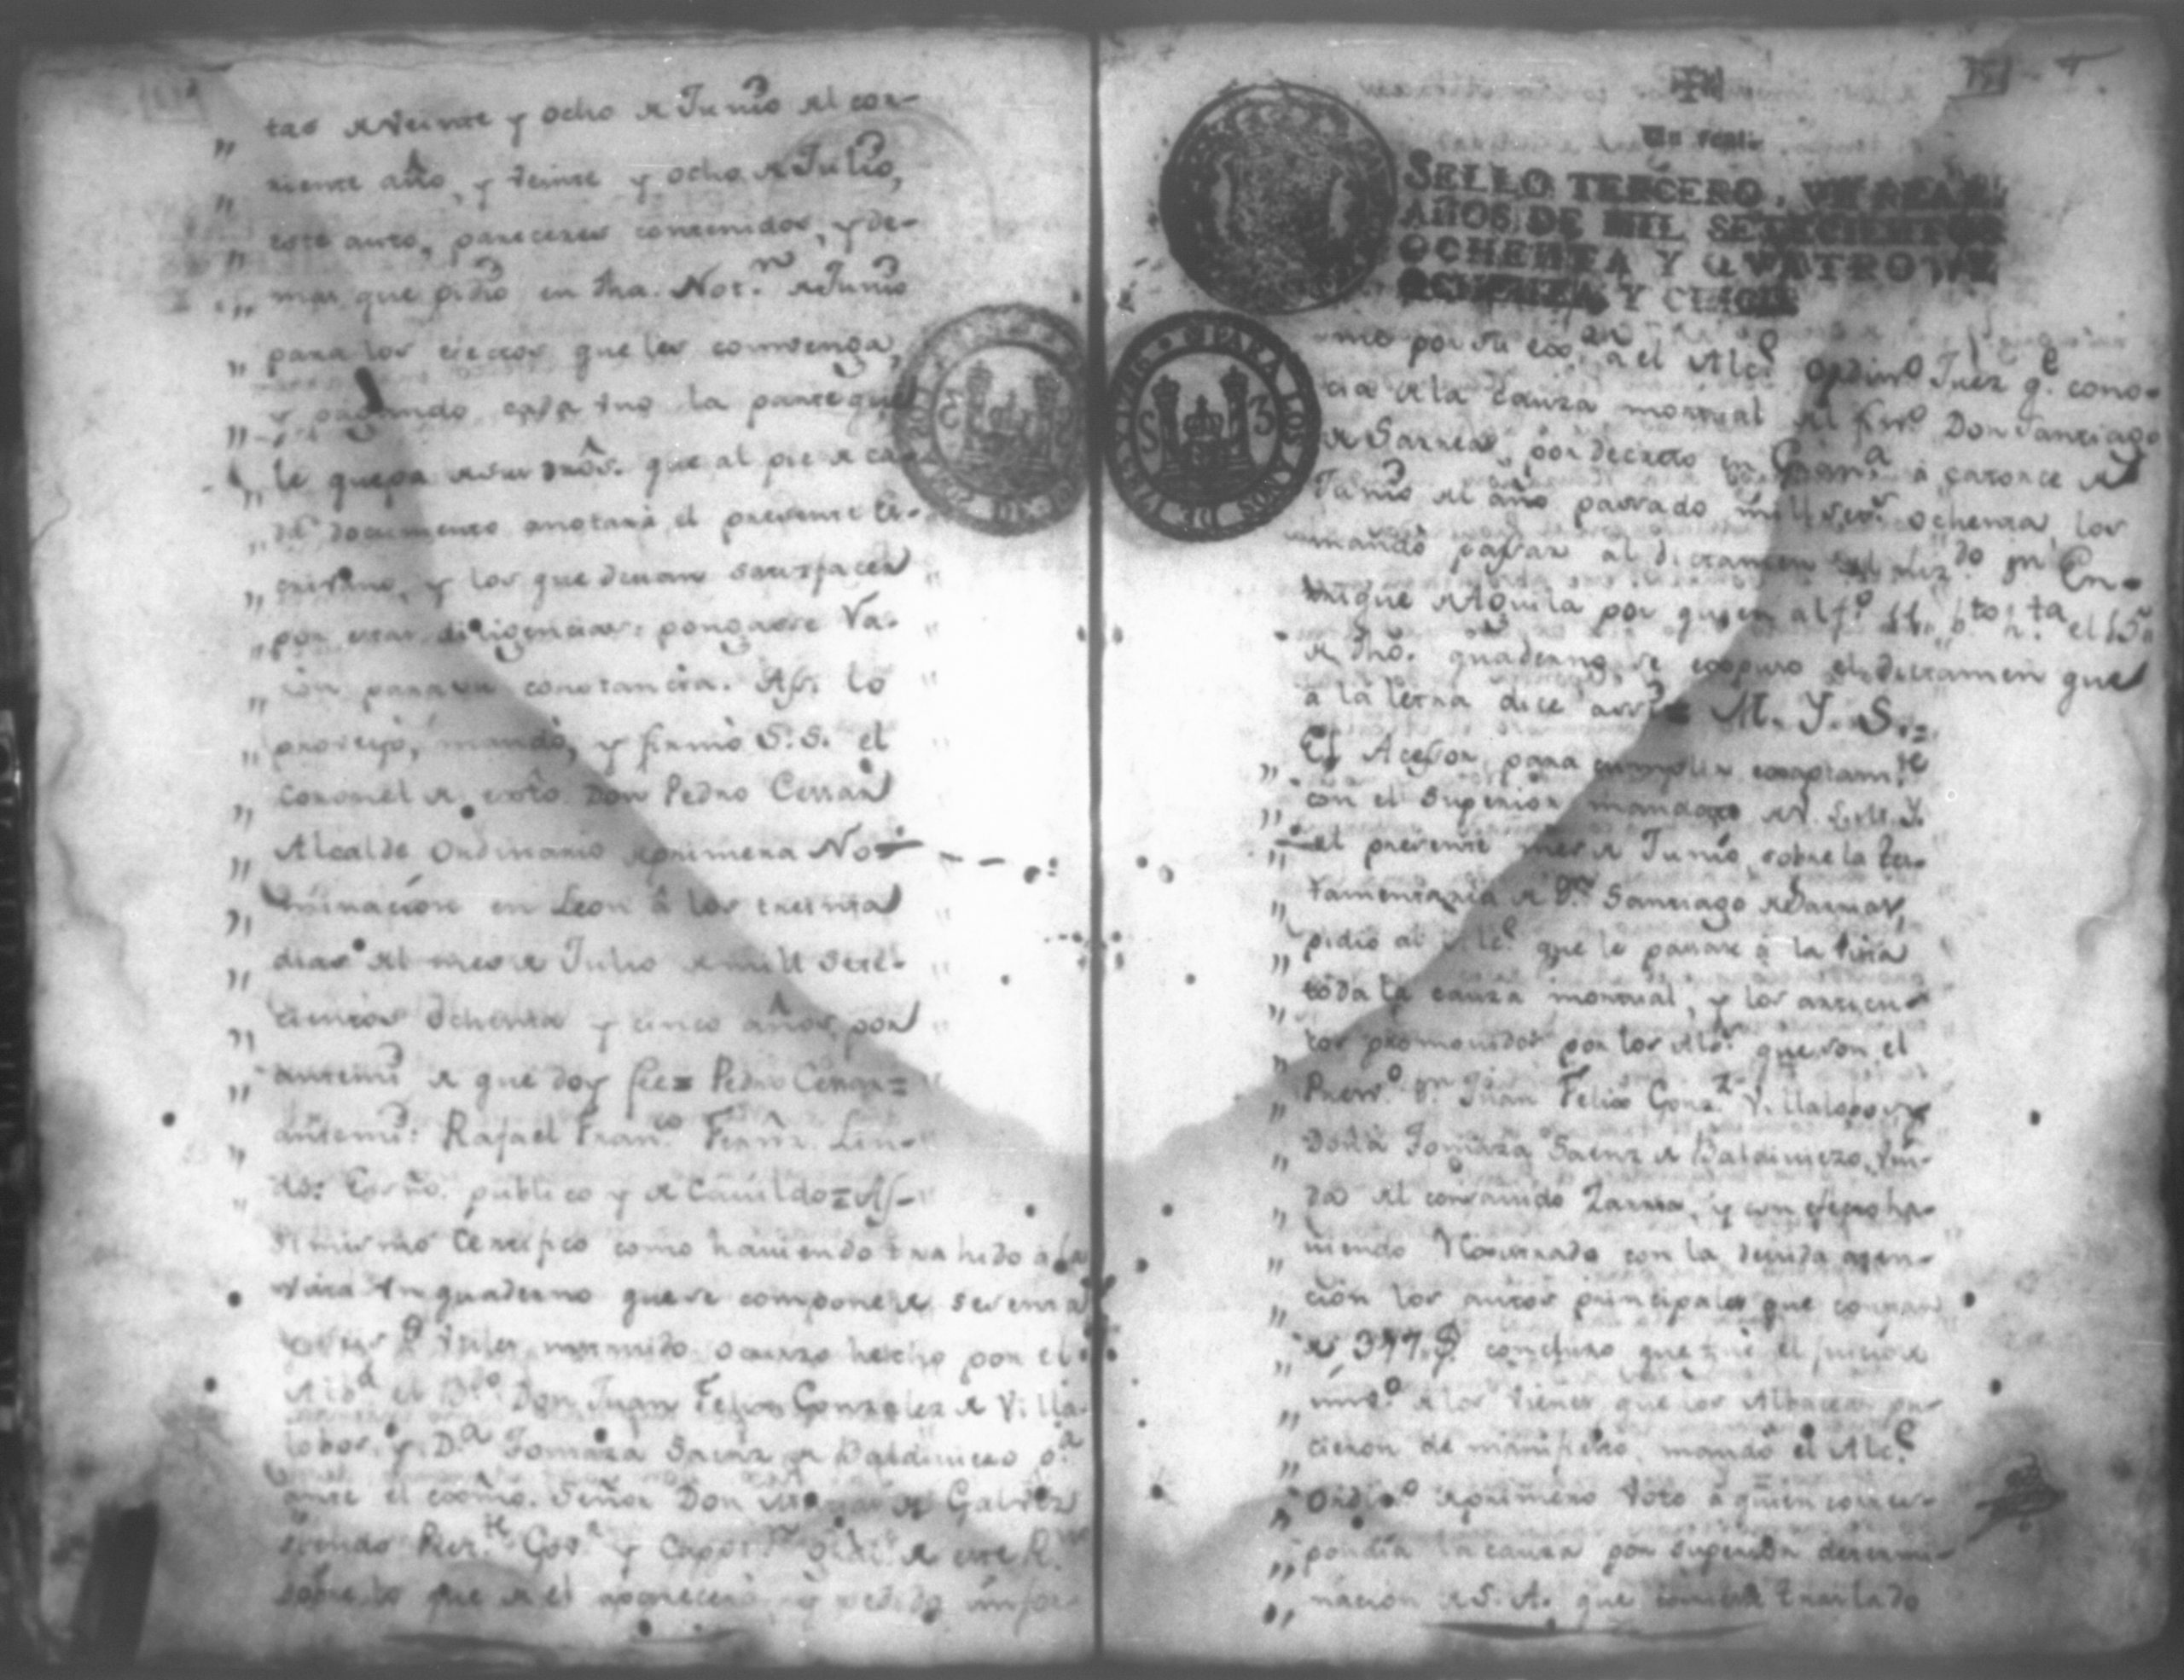 tas de veinte y ocho de Junio del cor-
riente año, y veinte y ocho de Julio,
este auto, pareceres contenidos, y de-
mas que pidio en dha. Not.n de Junio
para los efectos que les convenga,
y pagando cada uno la parte que
le quepa de sus dros. que al pie de ca-
da documento anotará el presente Es-
crivano, y los que devan satisfacer
por estas diligencias: pongasse Ra-
zon para su constancia. Assi lo
proveyó, mandó, y firmó S.S. el
Coronel de exto. Don Pedro Cessar
Alcalde Ordinario de primera No-
minacion en Leon â los treinta
dias del mes de Julio de mill sete-
cientos ochenta y cinco años, por
antemi de que doy fee = Pedro Cesar =
antemi: Rafael Fran.co Fernz. Len-
do: Escño. publico y de Cavildo = As-
simismo Certifico como haviendo trahido a la
vista un quaderno que se compone de setenta
utiles escrito hecho por el
Alb.a el B.r Don Juan Felix Gonzalez de Villa-
lobos, y D.a Tomaza Saenz de Baldivieso p.a
ante el exmo. Señor Don de Galvez
siendo Pres.te Gov.r y Capp.n gral. de este R.no
sobre lo que de el aparecerá, y pedido infor-
Un real.
SELLO TERCERO, VN REAL,
AÑOS DE MIL SETECIENTOS
OCHENTA Y QVATRO, Y
OCHENTA Y CINCO.
PARA LOS AÑOS DE
S 3
me por su exc.a a el Alc.e ordin.o Juez q.e cono-
cia de la causa mortual del fin.o Don Santiago
de Sarrea, por decreto en Goat.a a catorce de
Junio del año passado mill set.s ochenta, los
mandó passar al dictamen del Liz.do Dn En-
rique del Aguila por quien al f.o
de dho. quaderno, se expuso el dictamen que
a la letra dice assi = M. Y. S. =
El Acessor para cumplir exactam.te
con el superior mandato de V.
del presente mes de Junio, sobre la tes-
tamentaria de D.n Santiago de Sarrias,
pidio al Alc.e que le passase á la vista
toda la causa mortual, y los articu-
los promovidos por los Alb.s que son el
Presv.o D.n Juan Felix Gonz.z Villalobos, y
Doña Tomaza Saenz de Baldivieso, viu-
da del contenido Zarrea, y con efecto ha-
viendo Rexistrado con la devida aten-
cion los autos principales que constan
de 377.f. concluso que fue el juicio de
inv.o de los vienes que los Albaceas pu-
cieron de manifiesto, mandó el Alc.e
Ord.o de primero Voto á quien corres-
pondia la causa por superior determi-
nacion de S. A. que corriese traslado